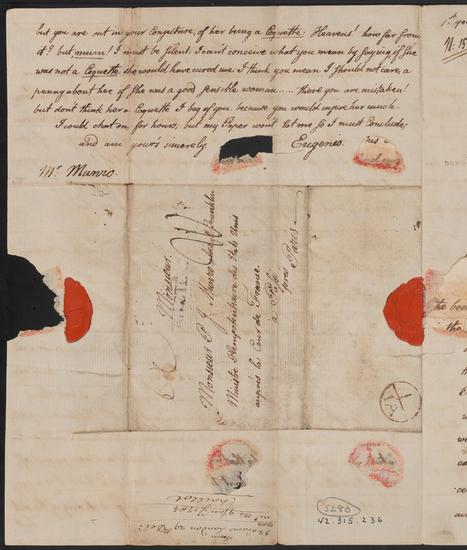 but you are out in your Conjecture, of her being a Coquette: Heavens! how far from
it? but mum! I must be silent; I can't conceive what you mean by saying if She
was not a Coquette she would have cured me: I think you mean I should not care, a
penny about her if She was a good sensible woman.... there you are mistaken!
but don't think her a Coquette I beg of you. because you would injure her much.
I could chat on for hours, but my Paper won't let me so I must Conclude;
and am yours sincerely Eugenes.
Mr Munro.
Monsieur
Monsieur P. J. Munro chez Franklin
Ministre Plenipotentiaire des Etats Unis
auprès la Cour de France
à Passy
près Paris
London 29 Decr
5280
42.315.236
1st
N. 15
The
tha